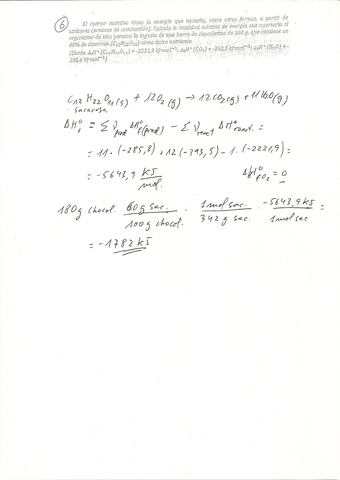 6
El cuerpo humano toma la energía que necesita, entre otras formas, a partir de
azúcares (proceso de combustión). Calcula la cantidad máxima de energía que aportaría al
organismo de una persona la ingesta de una barra de chocolatina de 180 g, que contiene un
60% de sacarosa (C₁₂H₂₂O₁₁) como único nutriente.
(Datos. ΔfHº (C₁₂H₂₂O₁₁) = -2221,9 kJ·mol⁻¹; ΔfHº (CO₂) = -393,5 kJ·mol⁻¹; ΔfHº (H₂O) = -
285,8 kJ·mol⁻¹)
C₁₂H₂₂O₁₁(s) + 12O₂(g) → 12CO₂(g) + 11H₂O(g)
sacarosa
ΔHºr = Σ νprod ΔHºf(prod) − Σ νreact ΔHºreact. =
= 11·(-285,8) + 12(-393,5) - 1·(-2221,9) =
= -5643,9 KJ/mol. ΔHºfO₂ = 0
180g chocol. 60g sac./100g chocol. · 1mol sac./342g sac. · -5643,9KJ/1mol sac
= -1782 KJ